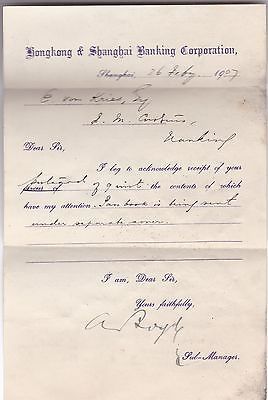 Hongkong & Shanghai Banking Corporation,
Shanghai, 26 Feby 1907
E. von Kries, Esq
I. M. Customs,
Nanking
Dear Sir,
I beg to acknowledge receipt of your
of 9 inst. the contents of which
have my attention. Passbook is being sent
under separate cover.
I am, Dear Sir,
Yours faithfully,
Sub-Manager.